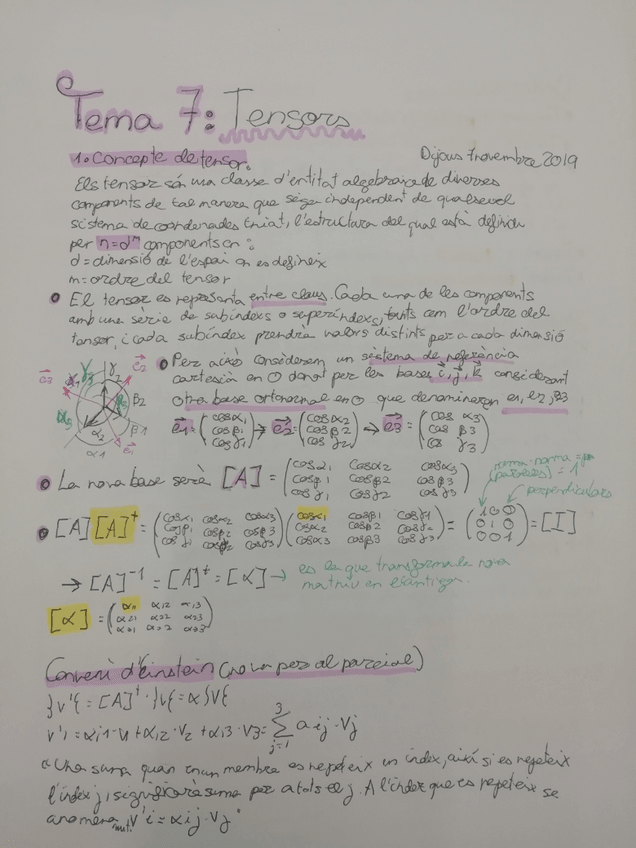 Tema 7: Tensors
1. Concepte de tensor.
Dijous 7 novembre 2019
Els tensor són una classe d'entitat algebraica de diverses
components de tal manera que seigen independent de qualsevol
sistema de coordenades triat, l'estructura del qual està definida
per n=d^m components on:
d = dimensió de l'espai on es defineix
m = ordre del tensor
El tensor es representa entre claus. Cada una de les components
amb una sèrie de subíndexs o superíndexs, tants com l'ordre del
tensor, i cada subíndex prendrà valors distints per a cada dimensió
Per això considerem un sistema de referència
cartesià en O donat per les bases i, j, k considerant
otra base ortonormal en O que denominarem e1, e2, e3
e1 = (cosα1 cosβ1 cosγ1) → e2 = (cosα2 cosβ2 cosγ2) → e3 = (cos α3 cos β3 cos γ3)
La nova base serà [A] = (cosα1 cosα2 cosα3
cosβ1 cosβ2 cosβ3
cosγ1 cosγ2 cosγ3)
perpendiculars
[A][A]^t = (cosα1 cosα2 cosα3 cosβ1 cosβ2 cosβ3 cosγ1 cosγ2 cosγ3)(cosα1 cosβ1 cosγ1 cosα2 cosβ2 cosγ2 cosα3 cosβ3 cosγ3) = (1 0 0 0 1 0 0 0 1) = [I]
→ [A]^-1 = [A]^t = [α] → es la que transforma la nova
matriu en l'antiga.
[α] = (α11 α12 α13
α21 α22 α23
α31 α32 α33)
Conveni d'Einstein (no va pers al parcial)
}v'{ = [A]^t · }v{ = α }v{
v'i = αi1·v1 + αi2·v2 + αi3·v3 = Σ j=1 3 aij·vj
"Una suma quan en un membre es repeteix un índex, així si es repeteix
l'índex j, significarà suma per a tots el j. A l'índex que es repeteix se
anomena mut. v'i = αij·vj"